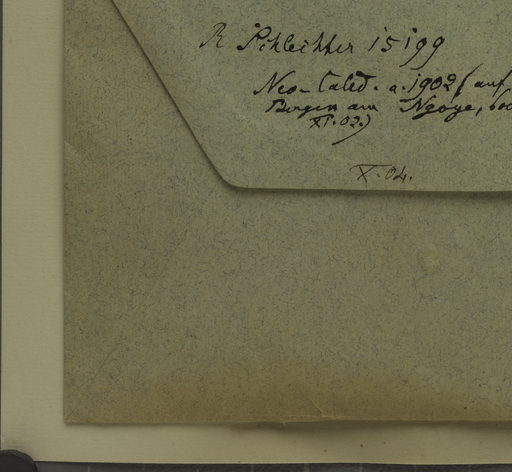 R Schlechter 15199
Neo-Caled. a. 1902 (auf
Bergen am Ngoye,
XI. 02.)
X. 04.